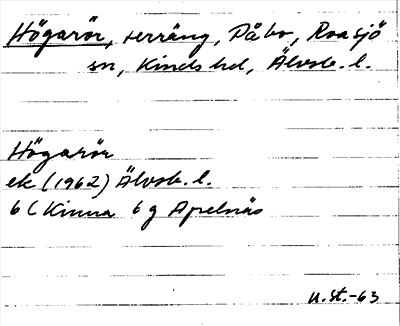 Högarör, terräng, Påbo, Roasjö
sn, Kinds hd, Älvsb. l.
Högarör
ek (1962) Älvsb. l.
6 C Kinna 6 g Apelnäs
u.st.-63